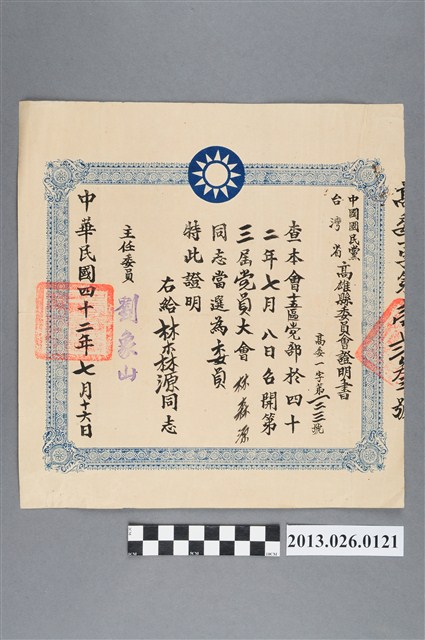 中國國民黨
台灣省
高雄縣委員會證明書
高委一字第一二三號
查本會圭區党部於四十
二年七月八日召開第
三屆党員大會林森源
同志當選為委員
特此證明
右給林森源同志
主任委員
劉象山
中華民國四十二年七月十六日
2013.026.0121